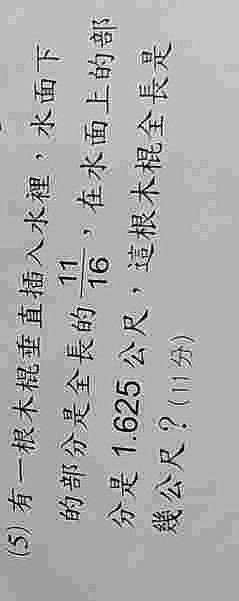 (5) 有一根木棍垂直插入水裡，水面下
的部分是全長的 11/16，在水面上的部
分是 1.625 公尺，這根木棍全長是
幾公尺？(11分)